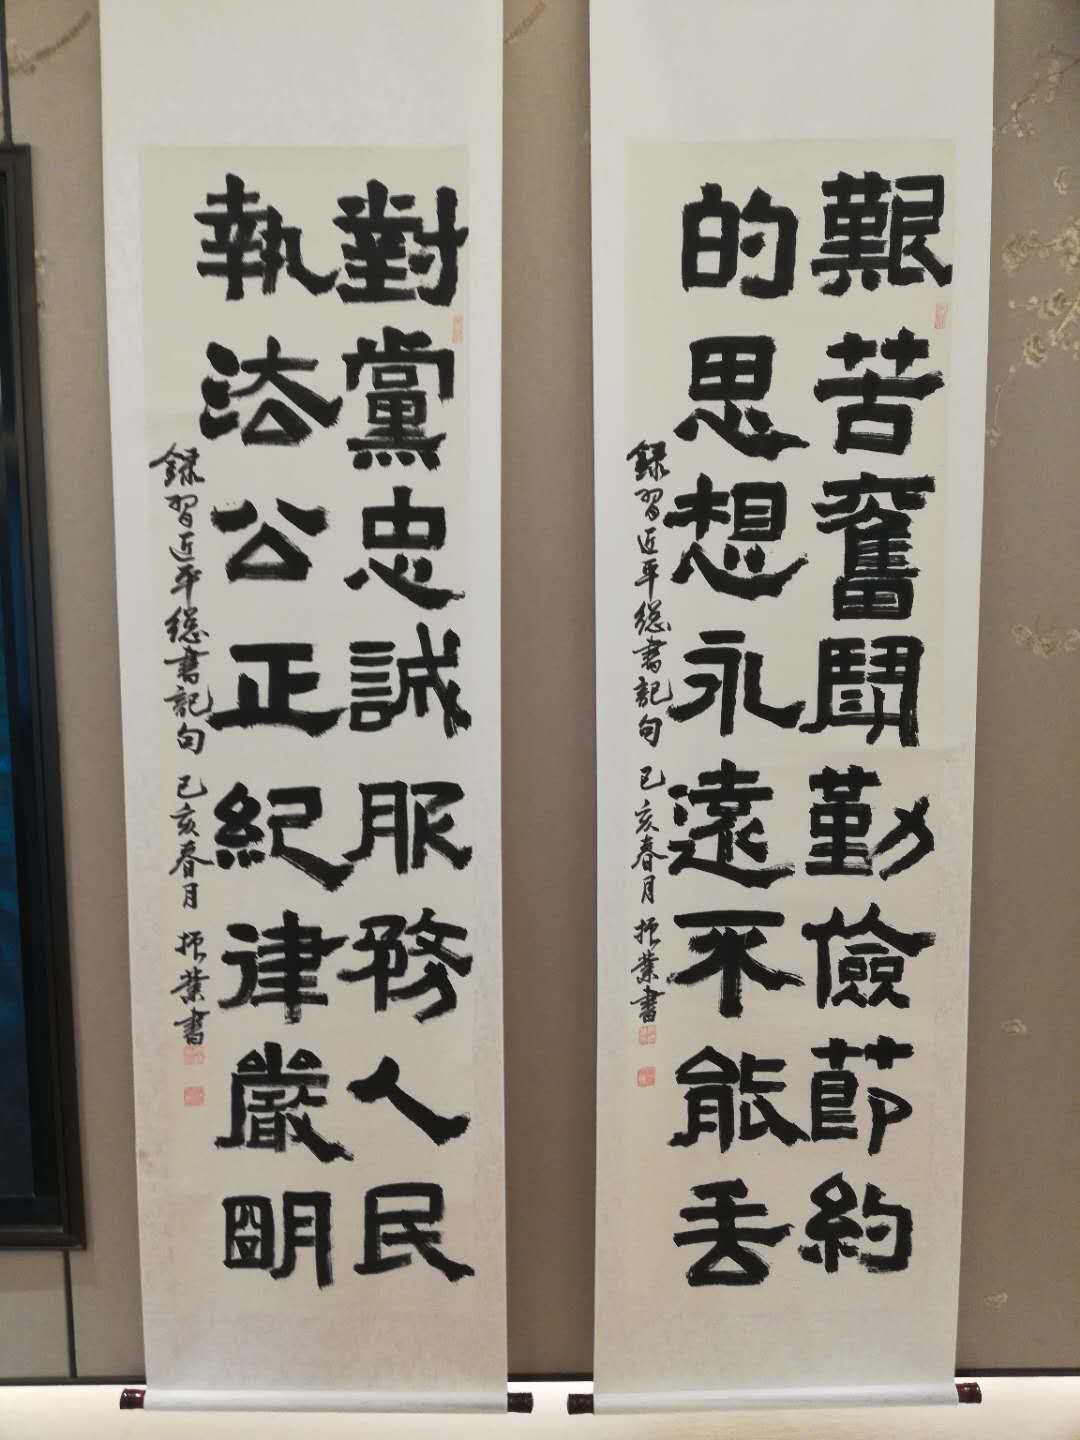 艱苦奮鬭勤儉節約
的思想永遠不能丟
録習近平總書記句 己亥春月 振業書
對黨忠誠服務人民
執法公正紀律嚴明
録習近平總書記句 己亥春月 振業書